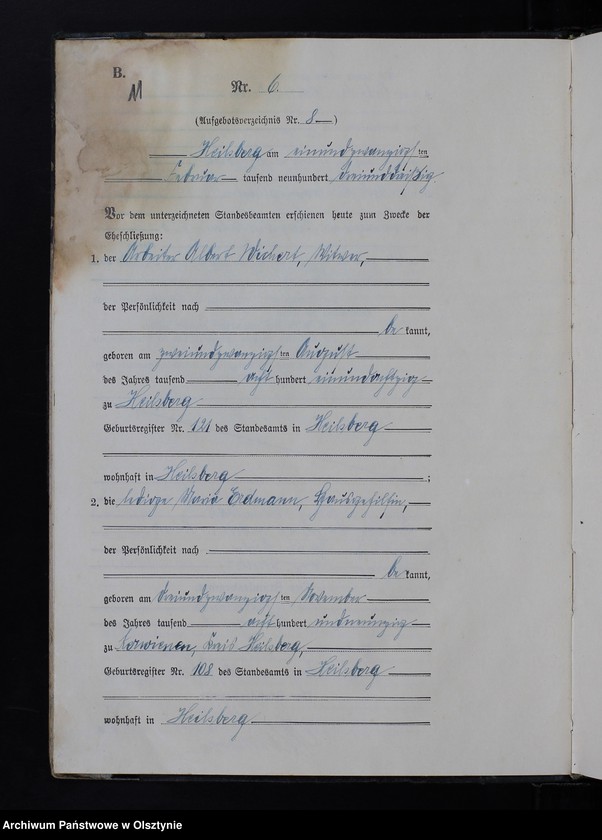 B.
M
Nr. 6.
(Aufgebotsverzeichnis Nr. 8)
Heilsberg am einundzwanzigsten
Februar tausend neunhundert dreiunddreißig
Vor dem unterzeichneten Standesbeamten erschienen heute zum Zwecke der
Eheschließung:
1. der Arbeiter Albert Wichert, Witwer,
der Persönlichkeit nach
be kannt,
geboren am zweiundzwanzigsten August
des Jahres tausend acht hundert einundachtzig
zu Heilsberg
Geburtsregister Nr. 121 des Standesamts in Heilsberg
wohnhaft in Heilsberg ;
2. die ledige Maria Erdmann, Hausgehilfin,
der Persönlichkeit nach
be kannt,
geboren am dreiundzwanzigsten November
des Jahres tausend acht hundert undneunzig
zu Kreis Heilsberg,
Geburtsregister Nr. 108 des Standesamts in Heilsberg
wohnhaft in Heilsberg
Archiwum Państwowe w Olsztynie